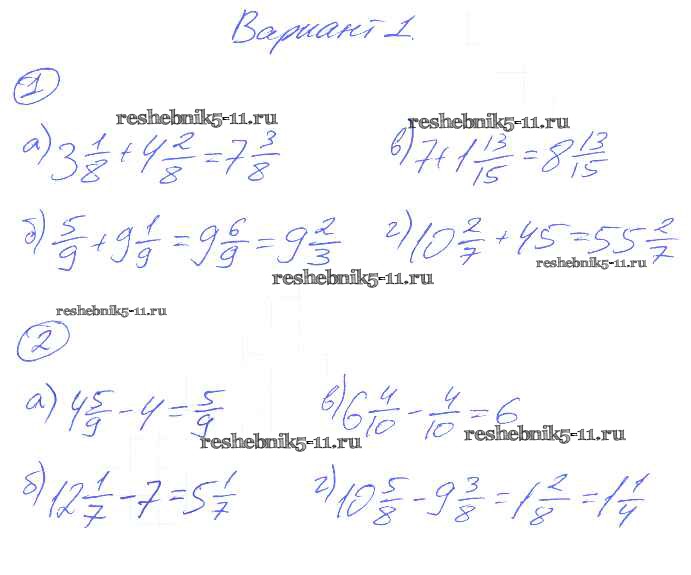 Вариант 1.
1
reshebnik5-11.ru reshebnik5-11.ru
а) 3 1/8 + 4 2/8 = 7 3/8 в) 7 + 1 13/15 = 8 13/15
б) 5/9 + 9 1/9 = 9 6/9 = 9 2/3 г) 10 2/7 + 45 = 55 2/7
reshebnik5-11.ru reshebnik5-11.ru
reshebnik5-11.ru
2
а) 4 5/9 - 4 = 5/9 в) 6 4/10 - 4/10 = 6
reshebnik5-11.ru reshebnik5-11.ru
б) 12 1/7 - 7 = 5 1/7 г) 10 5/8 - 9 3/8 = 1 2/8 = 1 1/4
reshebnik5-11.ru